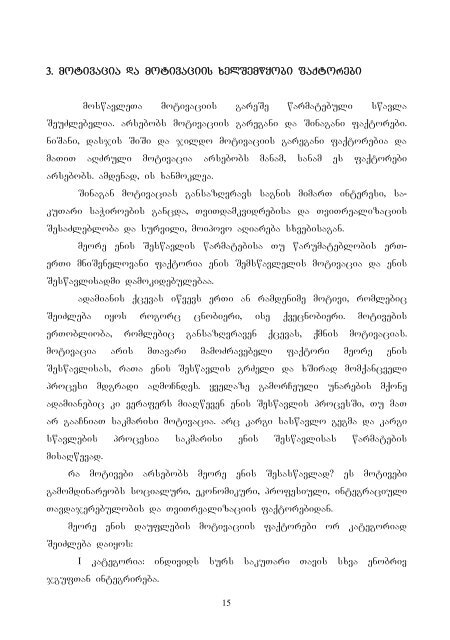 3. მოტივაცია და მოტივაციის ხელშემწყობი ფაქტორები
მოსწავლეთა მოტივაციის გარეშე წარმატებული სწავლა
შეუძლებელია. არსებობს მოტივაციის გარეგანი და შინაგანი ფაქტორები.
ნიშანი, დასჯის შიში და ჯილდო მოტივაციის გარეგანი ფაქტორებია და
მათით აღძრული მოტივაცია არსებობს მანამ, სანამ ეს ფაქტორები
არსებობს. ამდენად, ის ხანმოკლეა.
შინაგან მოტივაციას განსაზღვრავს საგნის მიმართ ინტერესი, სა-
კუთარი საჭიროების განცდა, თვითდამკვიდრებისა და თვითრეალიზაციის
შესაძლებლობა და სურვილი, მოიპოვო აღიარება სხვებისაგან.
მეორე ენის შესწავლის წარმატებისა თუ წარუმატებლობის ერთ-
ერთი მნიშვნელოვანი ფაქტორია ენის შემსწავლელის მოტივაცია და ენის
შესწავლისადმი დამოკიდებულებაა.
ადამიანის ქცევას იწვევს ერთი ან რამდენიმე მოტივი, რომლებიც
შეიძლება იყოს როგორც ცნობიერი, ისე ქვეცნობიერი. მოტივების
ერთობლიობა, რომლებიც განსაზღვრავენ ქცევას, ქმნის მოტივაციას.
მოტივაცია არის მთავარი მამოძრავებელი ფაქტორი მეორე ენის
შესწავლისას, რათა ენის შესწავლის გრძელი და ხშირად მომქანცველი
პროცესი მდგრადი აღმოჩნდეს. ყველაზე გამორჩეული უნარების მქონე
ადამიანებიც კი ვერაფერს მიაღწევენ ენის შესწავლის პროცესში, თუ მათ
არ გააჩნიათ საკმარისი მოტივაცია. არც კარგი სასწავლო გეგმა და კარგი
სწავლების პროცესია საკმარისი ენის შესწავლისას წარმატების
მისაღწევად.
რა მოტივები არსებობს მეორე ენის შესასწავლად? ეს მოტივები
გამომდინარეობს სოციალური, ეკონომიკური, პროფესიული, ინტეგრაციული
თავდაჯერებულობის და თვითრეალიზაციის ფაქტორებიდან.
მეორე ენის დაუფლების მოტივაციის ფაქტორები ორ კატეგორიად
შეიძლება დაიყოს:
I კატეგორია: ინდივიდს სურს საკუთარი თავის სხვა ენობრივ
ჯგუფთან ინტეგრირება.
15